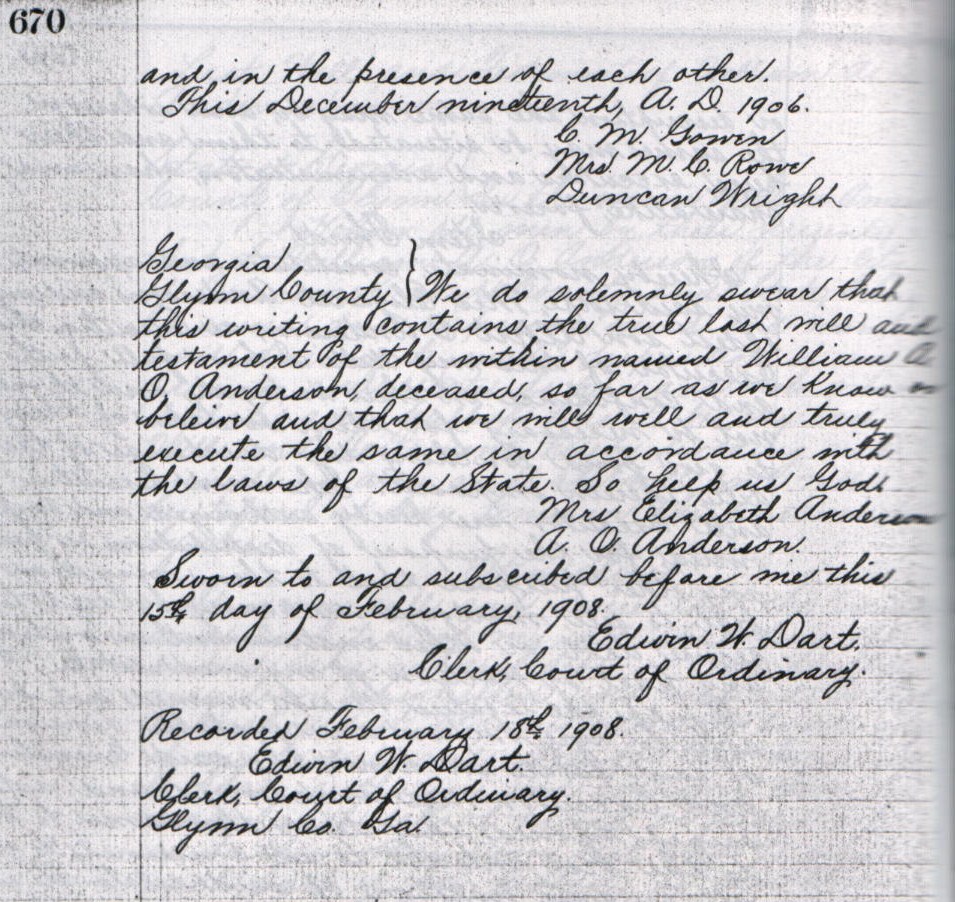 670
and in the presence of each other.
This December nineteenth, A. D. 1906.
C. M. Gowen
Mrs. M. C. Rowe
Duncan Wright
Georgia
Glynn County } We do solemnly swear that
this writing contains the true last will and
testament of the within named William A.
O. Anderson, deceased, so far as we know or
beleive and that we will well and truly
execute the same in accordance with
the laws of the State. So help us God.
Mrs Elizabeth Anderson
A. O. Anderson.
Sworn to and subscribed before me this
15th day of February, 1908.
Edwin W. Dart.
Clerk, Court of Ordinary.
Recorded February 18th, 1908.
Edwin W. Dart.
Clerk, Court of Ordinary.
Glynn Co. Ga.